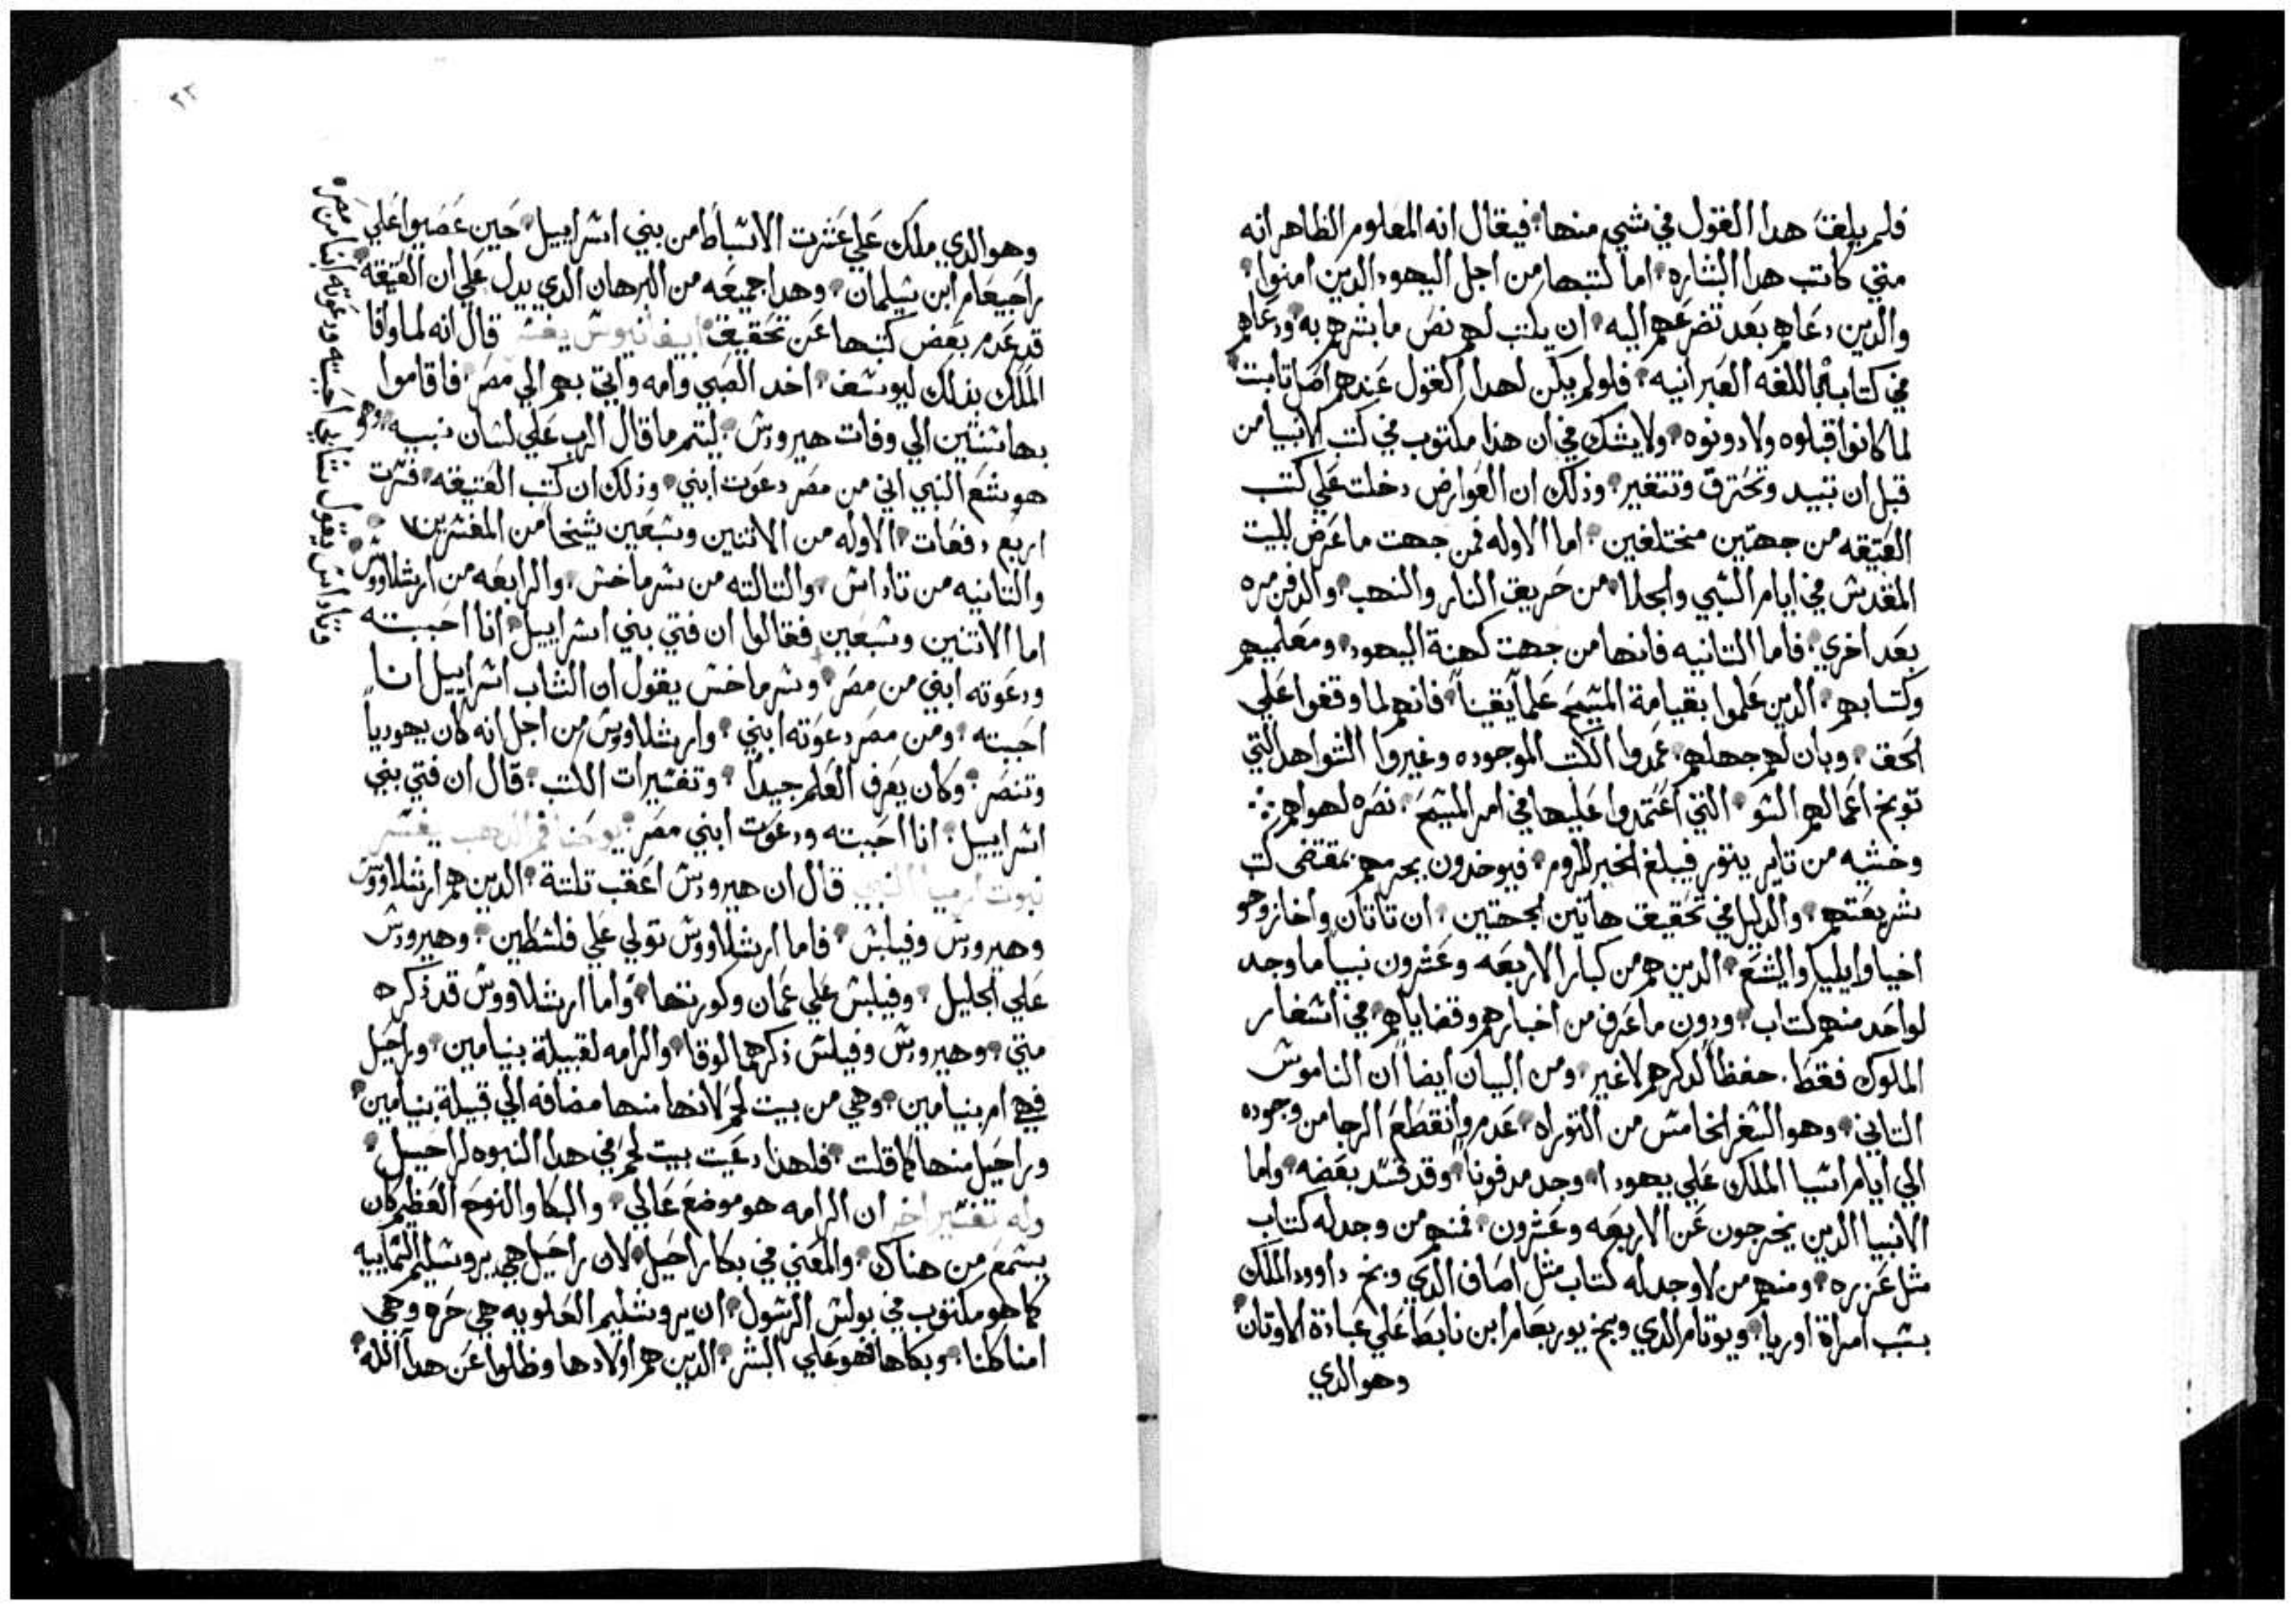 فلم يلغت هدا القول في شيي منها فيقال انه المعلوم الظاهر انه
متي كاتب هدا البشاره اما كتبها من اجل اليهود الدين امنوا
والدين دعاهم بعد تضرعهم اليه ان يكتب لهم نص ما بشرهم به ودعاهم
في كتابه باللغه العبرانيه فلولم يكن لهدا القول عندهم اصل تابت
لما كانوا قبلوه ولا دونوه ولا يشك في ان هذا مكتوب في كتب الانبيا من
قبل ان تبيد وتحترق وتتغير وذلك ان العوارض دخلت علي كتب
العتيقه من جهتين مختلفين اما الاوله فمن جهت ما عرض للبيت
المقدس في ايام السبي والجلا من حريق النار والنهب والدفن مره
بعد اخري فاما التانيه فانها من جهت كهنة اليهود ومعلميهم
وكتابهم الدين علموا بقيامة المسيح علماً يقيناً فانهم لما وقفوا علي
الحق وبان لهم جهلهم عمدوا الكتب الموجوده وغيروا الشواهد التي
توبخ اعمالهم السو التي اعتمدوا عليها في امر المسيح نصره لهواهم
وخشيه من تاير يتور فيبلغ الخبر للروم فيوخدون بجرمهم بمقتضى كتب
شريعتهم والدليل في تحقيق هاتين الحجتين ان ناتان واخاز وحو
اخيا وايليا واليشع الدين هم من كبار الاربعه وعشرون نبياً ما وجد
لواحد منهم كتاب ودون ما عرف من اخبارهم وقضاياهم في اسفار
الملوك فقط حفظاً لدكرهم لا غير ومن البيان ايضاً ان الناموس
التاني وهو السفر الخامس من التوراه عدم وانقطع الرجا من وجوده
الي ايام اشيا الملك علي يهودا وجد مدفوناً وقد فسد بعضه واما
الانبيا الدين يخرجون عن الاربعه وعشرون فمنهم من وجد له كتاب
مثل عزره ومنهم من لا وجد له كتاب مثل اصاف الدي وبخ داوود الملك
بسبب امراة اوريا ويوتام الدي وبخ يوربعام ابن ناباط علي عبادة الاوتان
وهو الدي
وهو الدي ملك علي عشرت الاسباط من بني اسراييل حين عصيوا علي
راحبعام ابن سليمان وهدا جميعه من البرهان الدي يدل علي ان العتيقه
قد عدم بعض كتبها عن تحقيق ابيفانيوس يفسر قال انه لما وافا
الملاك بدلك ليوسف اخد الصبي وامه واتي بهم الي مصر فاقاموا
بها سنتين الي وفات هيرودس ليتم ما قال الرب علي لسان نبيه وهو
هوشع النبي اني من مصر دعوت ابني وذلك ان كتب العتيقه فسرت
اربع دفعات الاوله من الاتنين وسبعين شيخاً من المفسرين
والتانيه من تاداس والتالته من سرماخس والرابعه من ارشلاووس
اما الاتنين وسبعين فقالوا ان فتي بني اسراييل انا احببته
ودعوته ابني من مصر وسرماخس يقول ان الشاب اسراييل انا
احببته ومن مصر دعوته ابني وارشلاووس من اجل انه كان يهودياً
وتنصر وكان يعرف العلم جيداً وتفسيرات الكتب قال ان فتي بني
اسراييل انا احببته ودعوت ابني مصر يوحنا فم الدهب يفسر
نبوت ارميا النبي قال ان هيرودس اعقب تلتة الدين هم ارشلاووس
وهيرودس وفيلبس فاما ارشلاووس تولي علي فلسطين وهيرودس
علي الجليل وفيلبس علي عمان وكورتها واما ارشلاووس قد ذكره
متي وهيرودس وفيلبس ذكرهما لوقا والرامه لقبيلة بنيامين وراحيل
فهي ام بنيامين وهي من بيت لحم لانها منها مضافه الي قبيلة بنيامين
وراحيل منها كما قلت فلهدا دعيت بيت لحم في هدا النبوه لراحيل
وله تفسير اخر ان الرامه هو موضع عالي والبكا والنوح العظيم كان
يسمع من هناك والمعني في بكا راحيل لان راحيل هي يروشليم السماييه
كما هو مكتوب في بولس الرسول ان يروشليم العلويه هي حره وهي
امنا كلنا وبكاها فهو علي البشر الدين هم اولادها وظلوا عن هدا الله
وتاداس يقول شاباً احببته ودعوته ابناً من مصر
٢٣